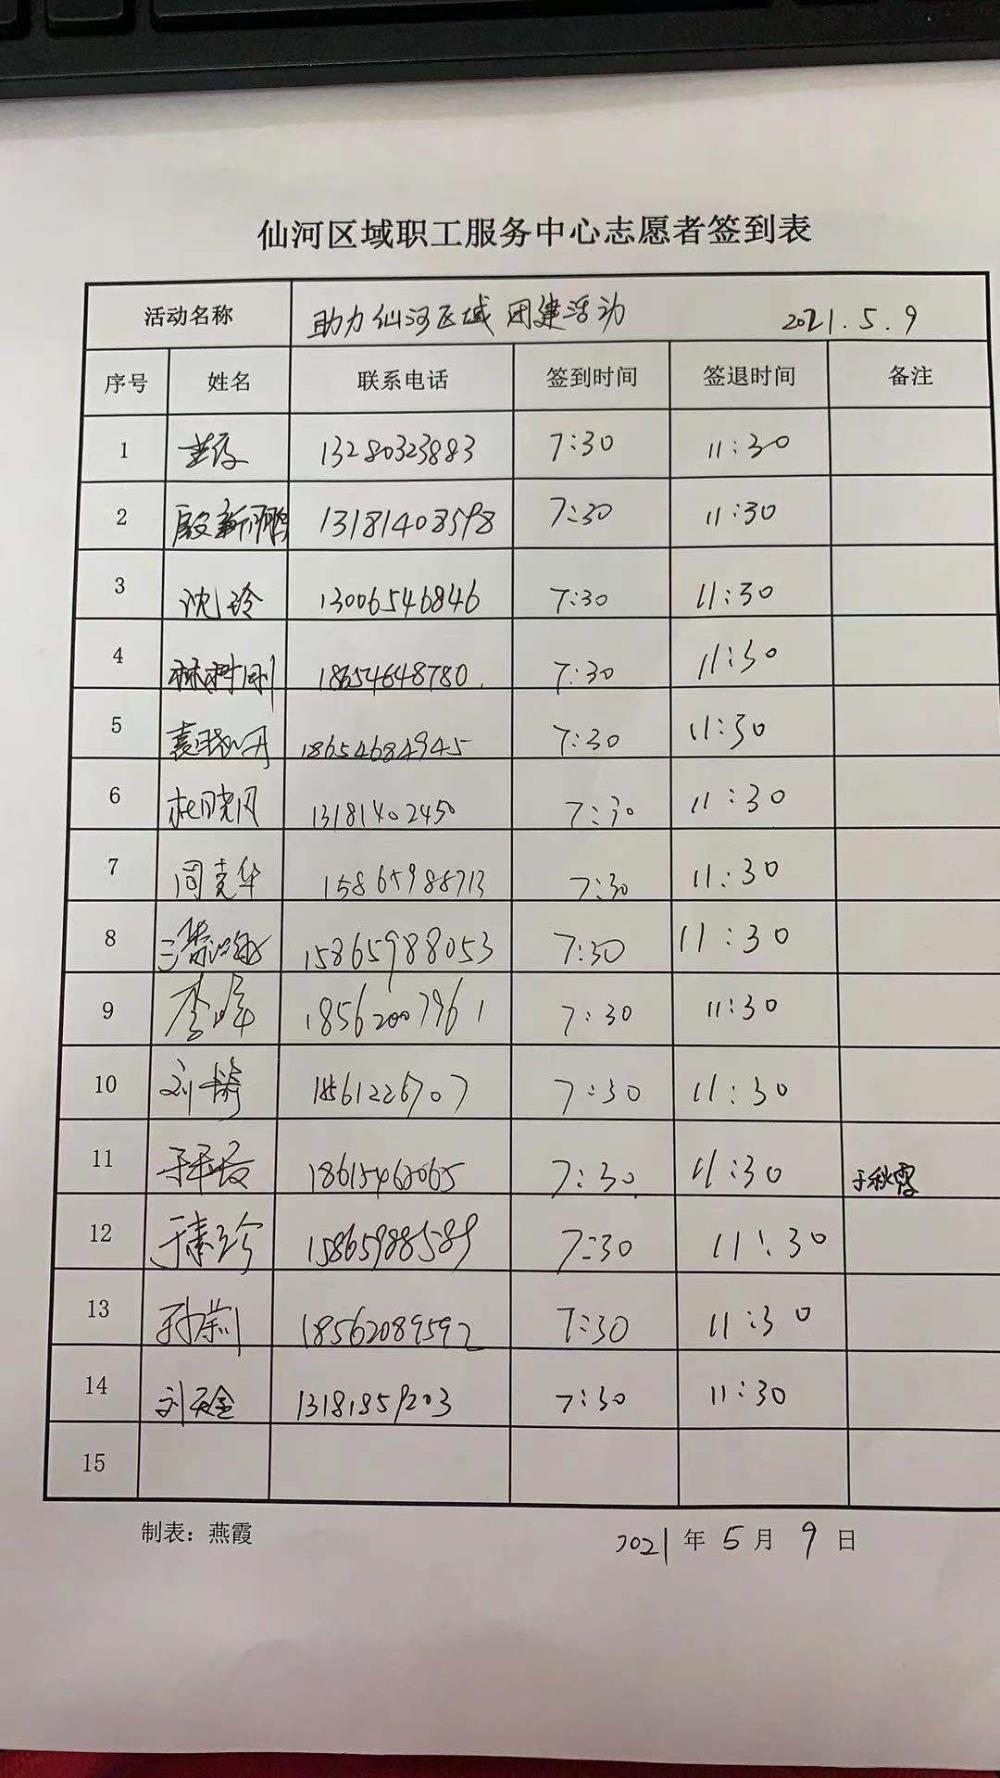 仙河区域职工服务中心志愿者签到表
活动名称 助力仙河区域团建活动 2021.5.9
序号 姓名 联系电话 签到时间 签退时间 备注
1 13280323883 7:30 11:30
2 殷新鹏 13181408598 7:30 11:30
3 沈玲 13006546846 7:30 11:30
4 林树刚 18654648780 7:30 11:30
5 袁晓丹 18654684945 7:30 11:30
6 杜晓风 13181402450 7:30 11:30
7 周克华 15865988713 7:30 11:30
8 15865988053 7:30 11:30
9 李峰 18562007961 7:30 11:30
10 刘琦 7:30 11:30
11 18615460065 7:30 11:30 于秋霞
12 于素珍 15865988589 7:30 11:30
13 孙莉 18562089592 7:30 11:30
14 刘天金 13181859203 7:30 11:30
15
制表：燕霞 2021年5月9日